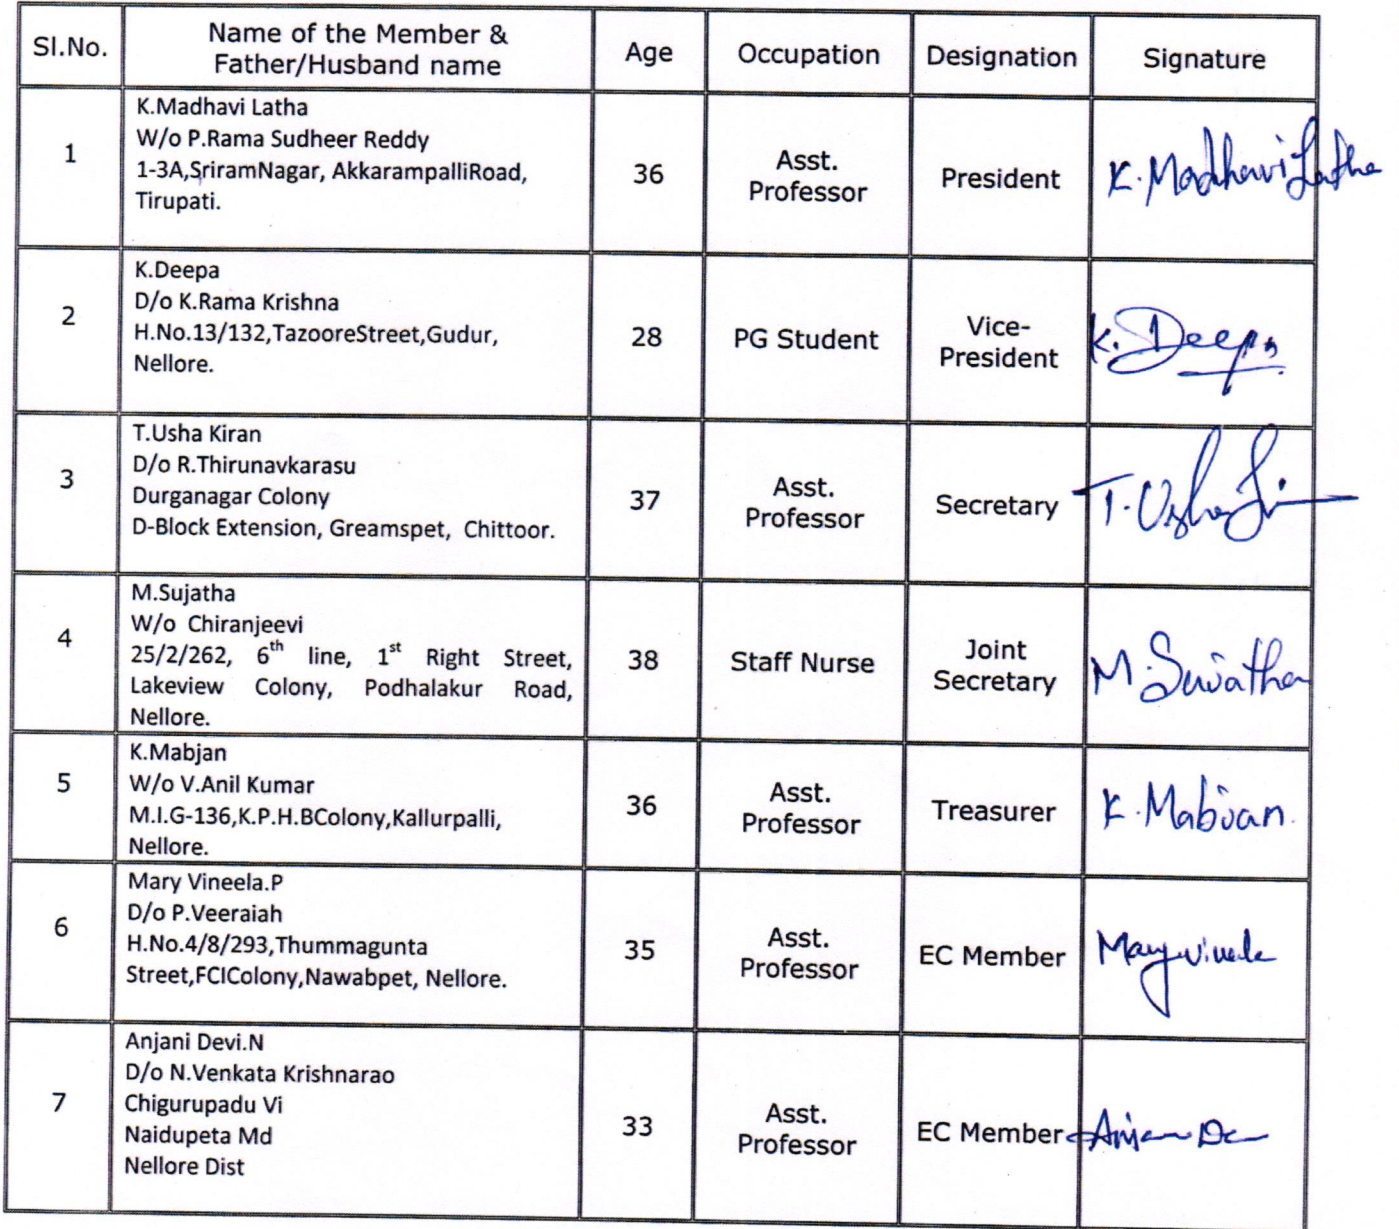 Sl.No.
Name of the Member &
Father/Husband name
Age
Occupation
Designation
Signature
1
K.Madhavi Latha
W/o P.Rama Sudheer Reddy
1-3A,SriramNagar, AkkarampalliRoad,
Tirupati.
36
Asst.
Professor
President
K.Madhavi Latha
2
K.Deepa
D/o K.Rama Krishna
H.No.13/132,TazooreStreet,Gudur,
Nellore.
28
PG Student
Vice-
President
K.Deepa
3
T.Usha Kiran
D/o R.Thirunavkarasu
Durganagar Colony
D-Block Extension, Greamspet, Chittoor.
37
Asst.
Professor
Secretary
T.Usha
4
M.Sujatha
W/o Chiranjeevi
25/2/262, 6th line, 1st Right Street,
Lakeview Colony, Podhalakur Road,
Nellore.
38
Staff Nurse
Joint
Secretary
M.Sujatha
5
K.Mabjan
W/o V.Anil Kumar
M.I.G-136,K.P.H.BColony,Kallurpalli,
Nellore.
36
Asst.
Professor
Treasurer
K.Mabjan.
6
Mary Vineela.P
D/o P.Veeraiah
H.No.4/8/293,Thummagunta
Street,FCIColony,Nawabpet, Nellore.
35
Asst.
Professor
EC Member
Mary Vineela
7
Anjani Devi.N
D/o N.Venkata Krishnarao
Chigurupadu Vi
Naidupeta Md
Nellore Dist
33
Asst.
Professor
EC Member